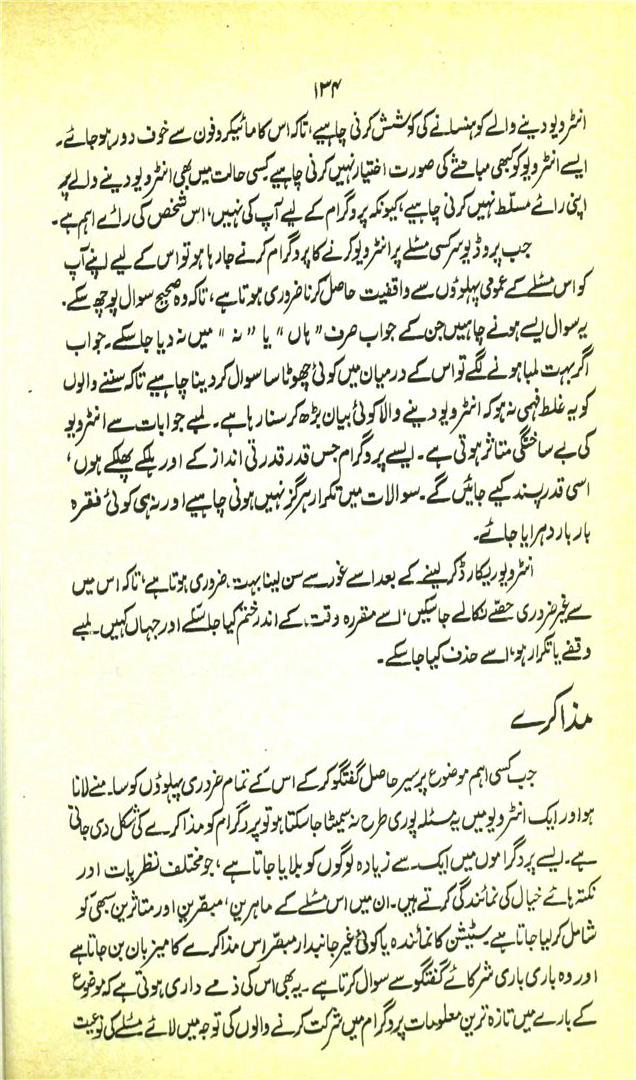 ۱۳۴
انٹرویو دینے والے کو ہنسانے کی کوشش کرنی چاہیے، تاکہ اس کا مائیکروفون سے خوف دور ہو جائے۔
ایسے انٹرویو کو کبھی مباحثے کی صورت اختیار نہیں کرنی چاہیے کسی حالت میں بھی انٹرویو دینے والے پر
اپنی رائے مسلّط نہیں کرنی چاہیے، کیونکہ پروگرام کے لیے آپ کی نہیں، اس شخص کی رائے اہم ہے۔
جب پروڈیوسر کسی مسئلے پر انٹرویو کرنے کا پروگرام کرنے جا رہا ہو تو اس کے لیے اپنے آپ
کو اس مسئلے کے عمومی پہلوؤں سے واقفیت حاصل کرنا ضروری ہوتا ہے، تاکہ وہ صحیح سوال پوچھ سکے۔
یہ سوال ایسے ہونے چاہئیں جن کے جواب صرف "ہاں" یا "نہ" میں نہ دیا جا سکے۔ جواب
اگر بہت لمبا ہونے لگے تو اس کے درمیان میں کوئی چھوٹا سا سوال کر دینا چاہیے تاکہ سننے والوں
کو یہ غلط فہمی نہ ہو کہ انٹرویو دینے والا کوئی بیان پڑھ کر سنا رہا ہے۔ لمبے جوابات سے انٹرویو
کی بے ساختگی متاثر ہوتی ہے۔ ایسے پروگرام جس قدر قدرتی انداز کے اور ہلکے پھلکے ہوں،
اسی قدر پسند کیے جائیں گے۔ سوالات میں تکرار ہرگز نہیں ہونی چاہیے اور نہ ہی کوئی فقرہ
بار بار دہرایا جائے۔
انٹرویو ریکارڈ کر لینے کے بعد اسے غور سے سن لینا بہت ضروری ہوتا ہے، تاکہ اس میں
سے غیر ضروری حصّے نکالے جا سکیں، اسے مقررہ وقت کے اندر ختم کیا جا سکے اور جہاں کہیں لمبے
وقفے یا تکرار ہو، اسے حذف کیا جا سکے۔
مذاکرے
جب کسی اہم موضوع پر سیر حاصل گفتگو کر کے اس کے تمام ضروری پہلوؤں کو سامنے لانا
ہو اور ایک انٹرویو میں یہ مسئلہ پوری طرح نہ سمیٹا جا سکتا ہو تو پروگرام کو مذاکرے کی شکل دی جاتی
ہے۔ ایسے پروگراموں میں ایک سے زیادہ لوگوں کو بلایا جاتا ہے، جو مختلف نظریات اور
نکتہ ہائے خیال کی نمائندگی کرتے ہیں۔ ان میں اس مسئلے کے ماہرین، مبصّرین اور متاثرین سبھی کو
شامل کر لیا جاتا ہے۔ سٹیشن کا نمائندہ یا کوئی غیر جانبدار مبصّر اس مذاکرے کا میزبان بن جاتا ہے
اور وہ باری باری شرکائے گفتگو سے سوال کرتا ہے۔ یہ بھی اس کی ذمے داری ہوتی ہے کہ موضوع
کے بارے میں تازہ ترین معلومات پروگرام میں شرکت کرنے والوں کی توجہ میں لائے مسئلے کی نوعیت